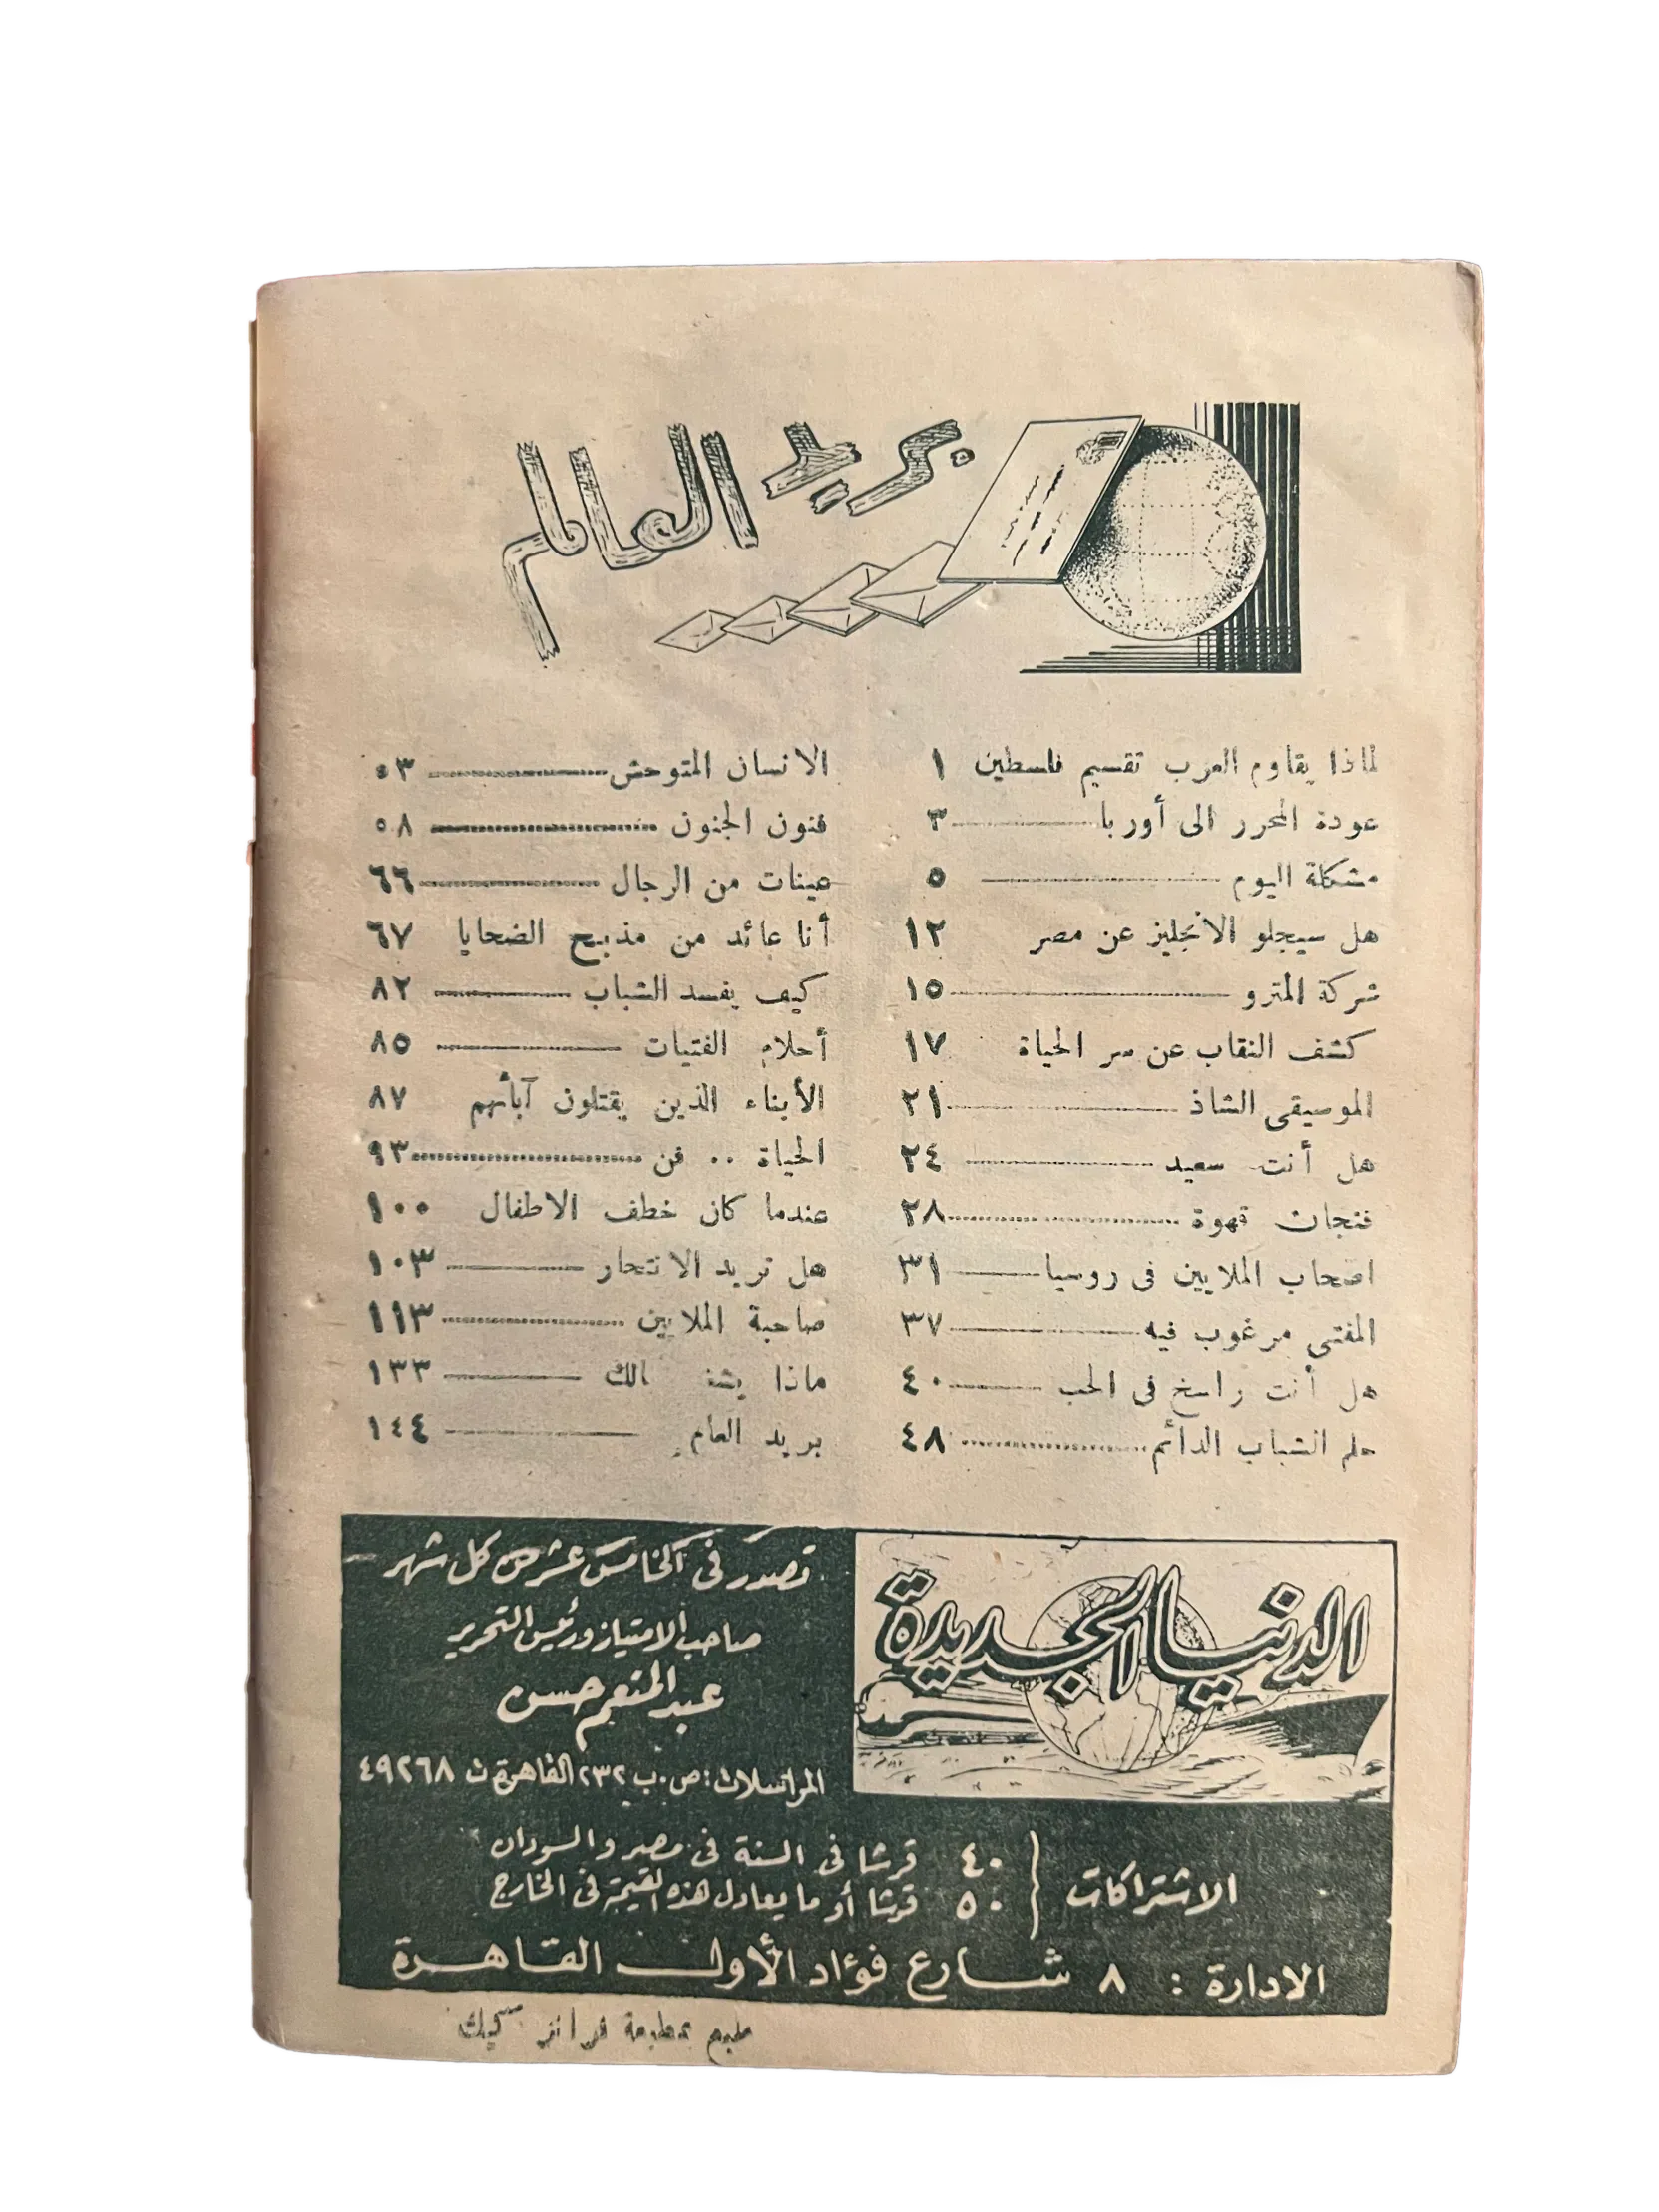 بريد العالم
لماذا يقاوم العرب تقسيم فلسطين ١
عودة المحرر الى أوربا ٣
مشكلة اليوم ٥
هل سيجلو الانجليز عن مصر ١٢
شركة المترو ١٥
كشف النقاب عن سر الحياة ١٧
الموسيقى الشاذ ٢١
هل أنت سعيد ٢٤
فنجان قهوة ٢٨
اصحاب الملايين فى روسيا ٣١
المفتى مرغوب فيه ٣٧
هل أنت راسخ فى الحب ٤٠
حلم الشباب الدائم ٤٨
الانسان المتوحش ٥٣
فنون الجنون ٥٨
عينات من الرجال ٦٦
أنا عائد من مذبح الضحايا ٦٧
كيف يفسد الشباب ٨٢
أحلام الفتيات ٨٥
الأبناء الذين يقتلون آبائهم ٨٧
الحياة .. فن ٩٣
عندما كان خطف الاطفال ١٠٠
هل تريد الانتحار ١٠٣
صاحبة الملايين ١١٣
ماذا ١٣٣
بريد العالم ١٤٤
الدنيا الجديدة
تصدر فى الخامس عشر من كل شهر
صاحب الامتياز ورئيس التحرير
عبد المنعم حسن
المراسلات : ص . ب ٢٣٢ القاهرة ت ٤٩٢٦٨
الاشتراكات
٤٠ قرشا فى السنة فى مصر والسودان
٥٠ قرشا أو ما يعادل هذه القيمة فى الخارج
الادارة : ٨ شارع فؤاد الأول القاهرة
طبع بمطبعة